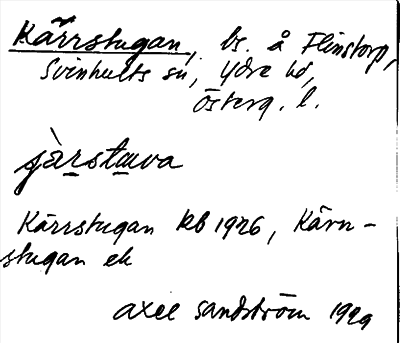 Kärrstugan, bs. å Flinstorp,
Svinhults sn, Ydre hd,
Österg. l.
Kärrstugan kb 1926, Kärn-
stugan ek
Axel Sandström 1929